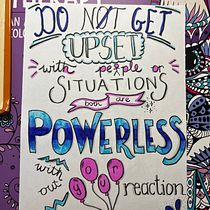 DO NOT GET
UPSET
with people or
SITUATIONS
both are
POWERLESS
with out your reaction